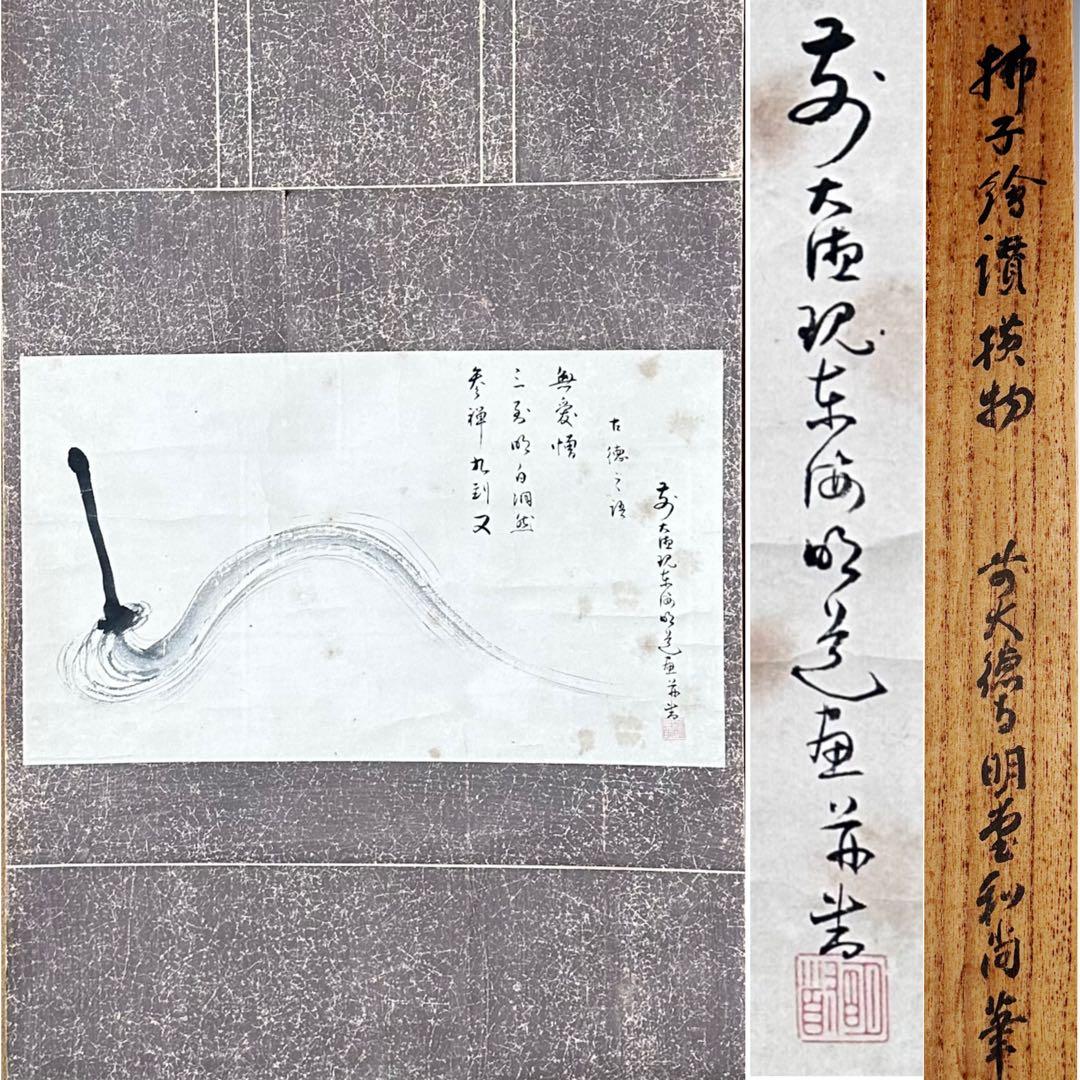 參禅九到又
三到明白洞然
無愛憎
古德之語
前大徳現東海明堂画并賛
前大徳現東海明堂画并賛
拂子繪讃横物
前大德寺明堂和尚筆